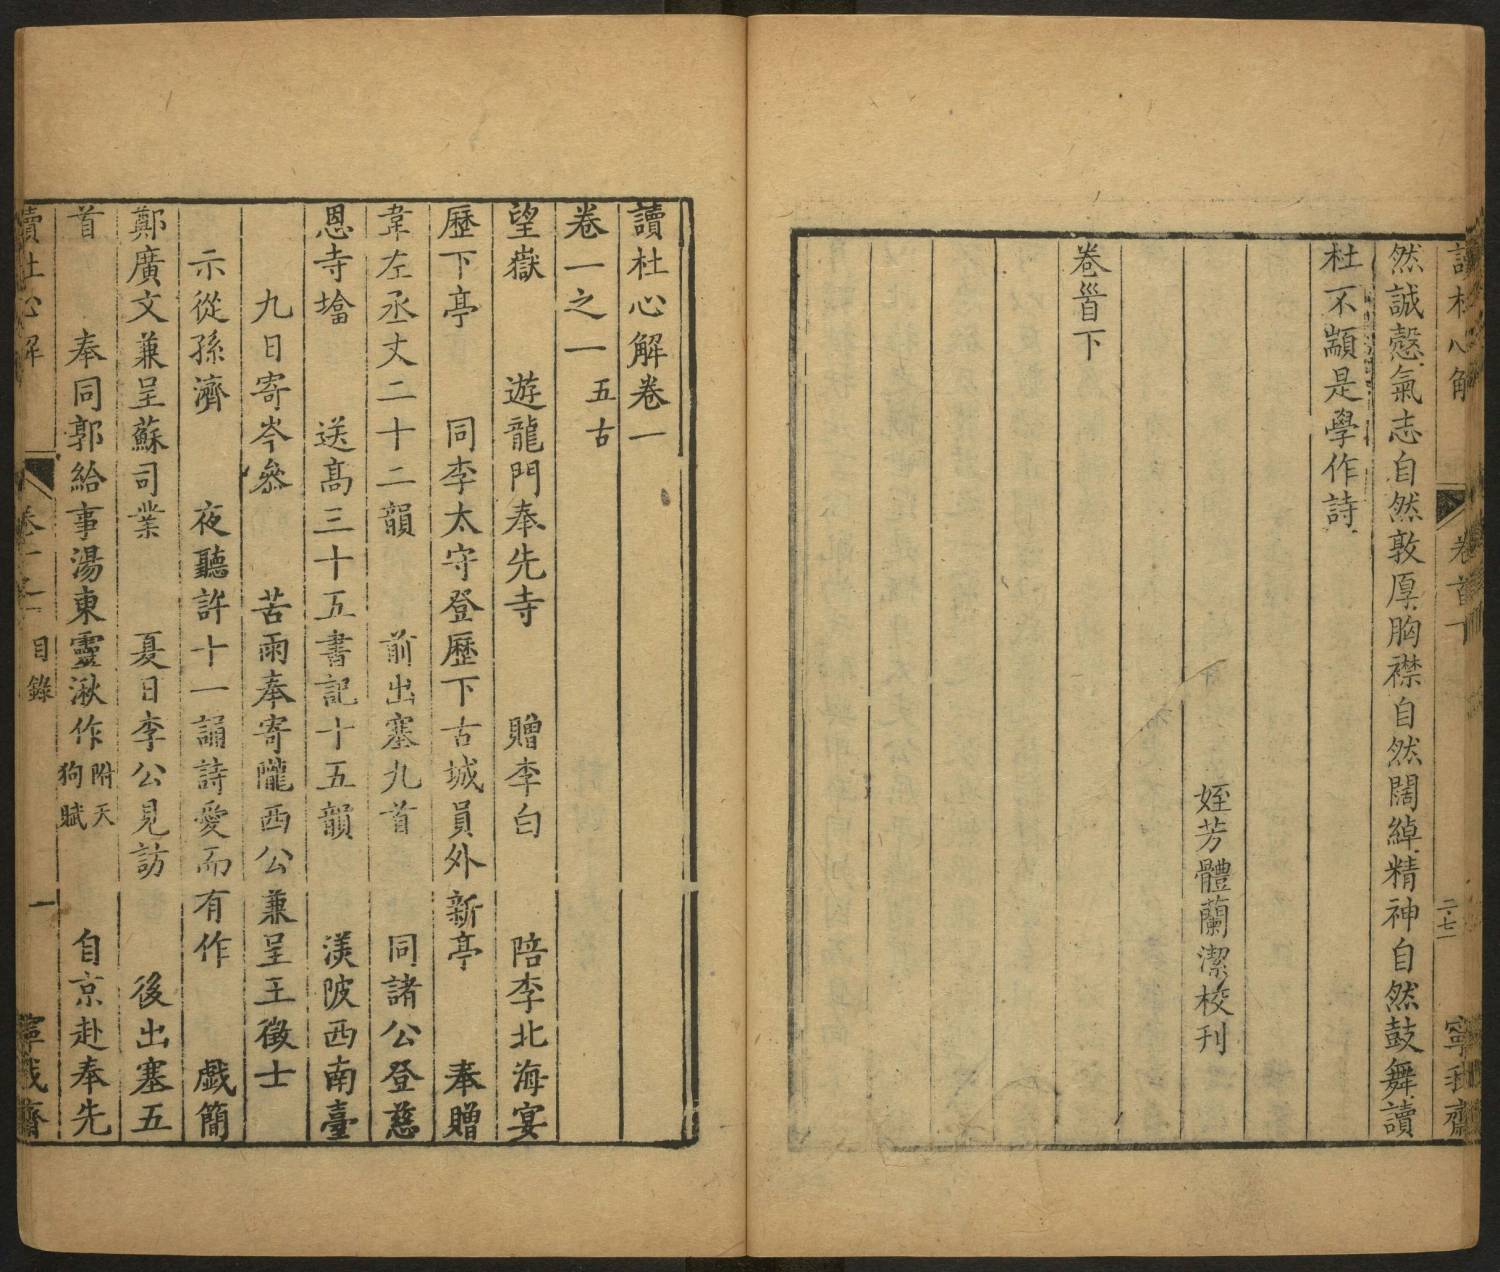 讀杜心解
卷首下
二七
寧我齋
然誠慤氣志自然敦厚胸襟自然闊綽精神自然鼓舞讀
杜不顓是學作詩
姪芳體蘭潔校刊
卷首下
讀杜心解卷一
卷一之一 五古
望嶽 遊龍門奉先寺 贈李白 陪李北海宴
歷下亭 同李太守登歷下古城員外新亭 奉贈
韋左丞丈二十二韻 前出塞九首 同諸公登慈
恩寺墖 送髙三十五書記十五韻 渼陂西南臺
九日寄岑參 苦雨奉寄隴西公兼呈王徵士
示從孫濟 夜聽許十一誦詩愛而有作 戯簡
鄭廣文兼呈蘇司業 夏日李公見訪 後出塞五
首 奉同郭給事湯東靈湫作 附天狗賦 自京赴奉先
讀杜心解
卷一之一
目錄
一
寧我齋